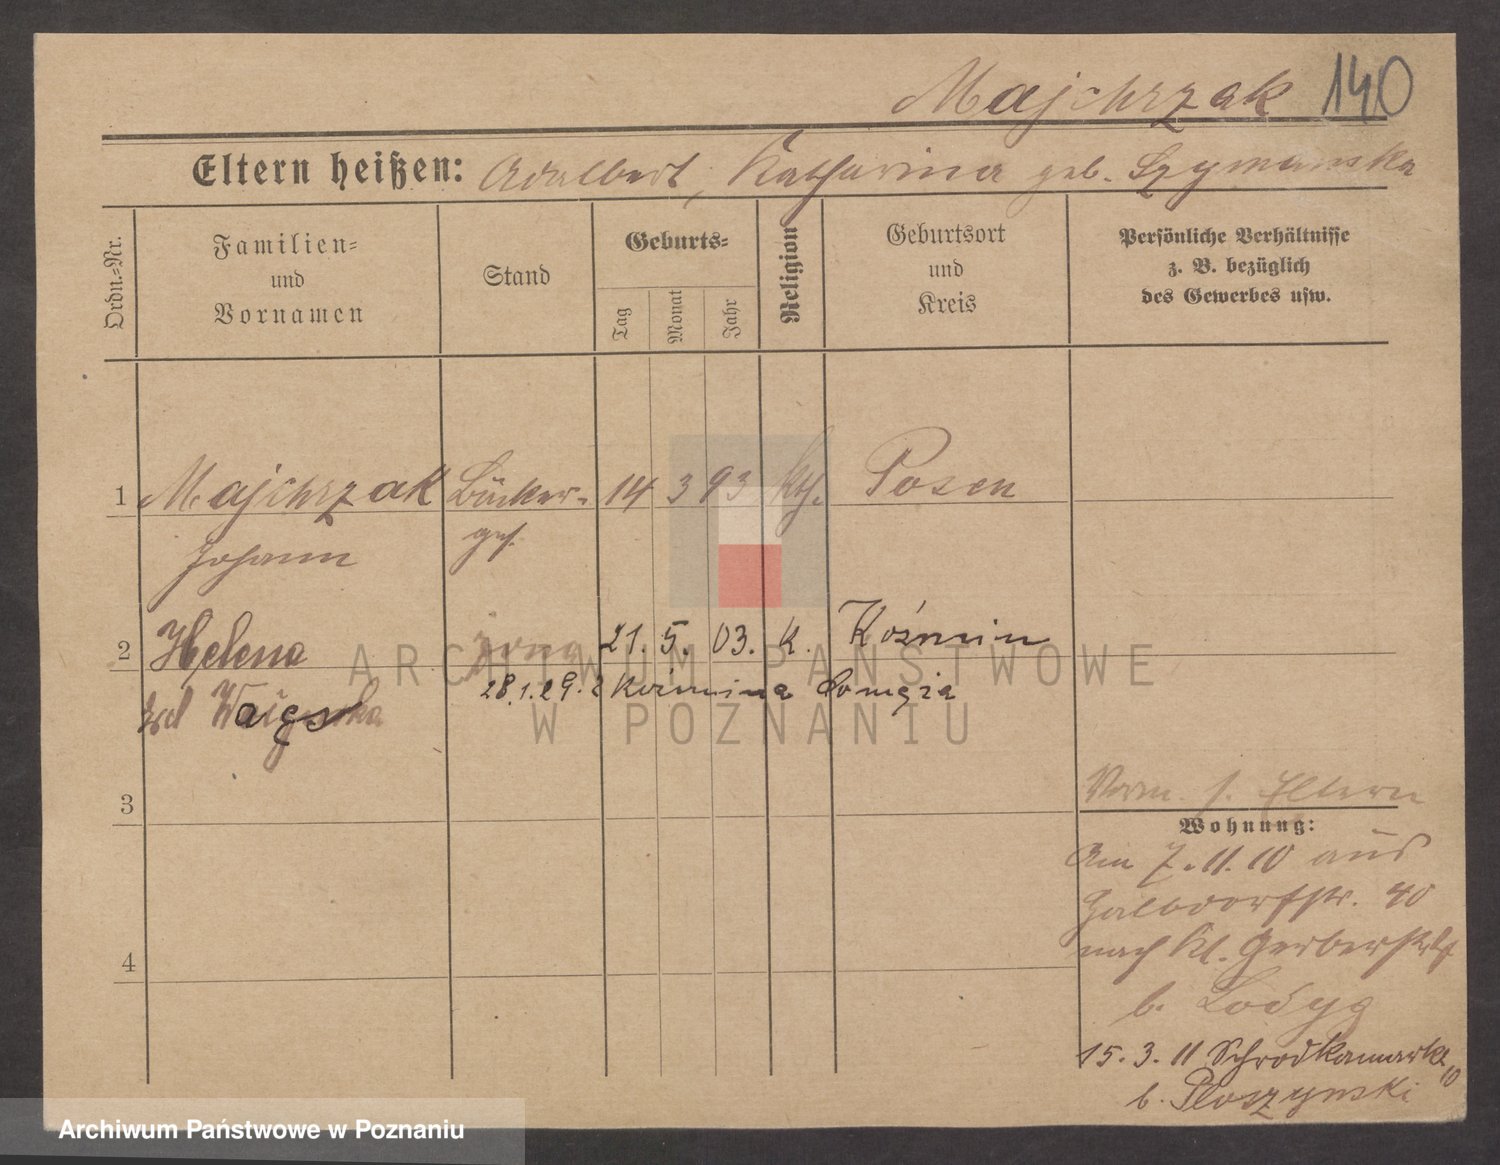 Majchrzak 140
Eltern heißen: Adalbert, Katharina geb. Szymanska
Ordn.-Nr.
Familien-
und
Vornamen
Stand
Geburts-
Tag
Monat
Jahr
Religion
Geburtsort
und
Kreis
Persönliche Verhältnisse
z. B. bezüglich
des Gewerbes usw.
1 Majchrzak Bäcker- 14 3 93 kth. Posen
Johann ges.
2 Helena żona 21. 5. 03. k. Koźmin
28.1.29. z Koźmina
3
Vorm. s. Eltern
Wohnung:
Am 7.11.10 aus
40
nach Kl. Gerberstr.
4
b. Lodyg
15.3.11 Schrodkamarkt 10
b. Ploszynski
ARCHIWUM PAŃSTWOWE
W POZNANIU
Archiwum Państwowe w Poznaniu